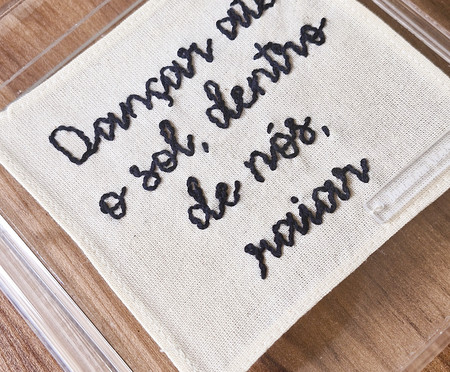 Dançar até
o sol, dentro
de nós,
raiar